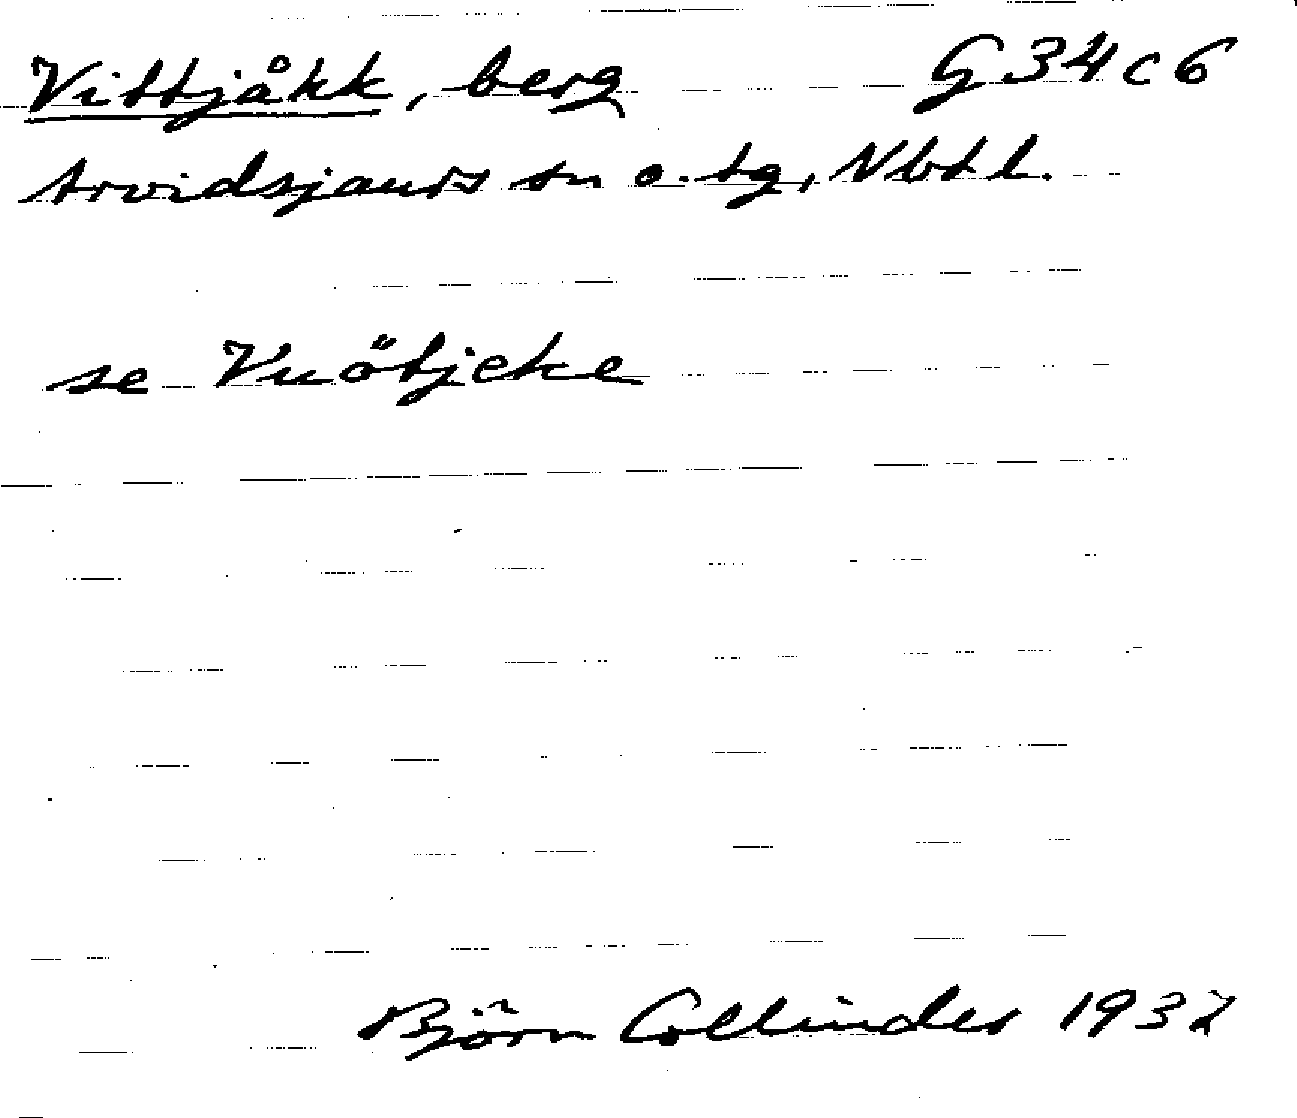 Vittjåkk, berg G 34 c 6
Arvidsjaurs sn o. tg, Nbtl.
se Vuötjeke
Björn Collinder 1937